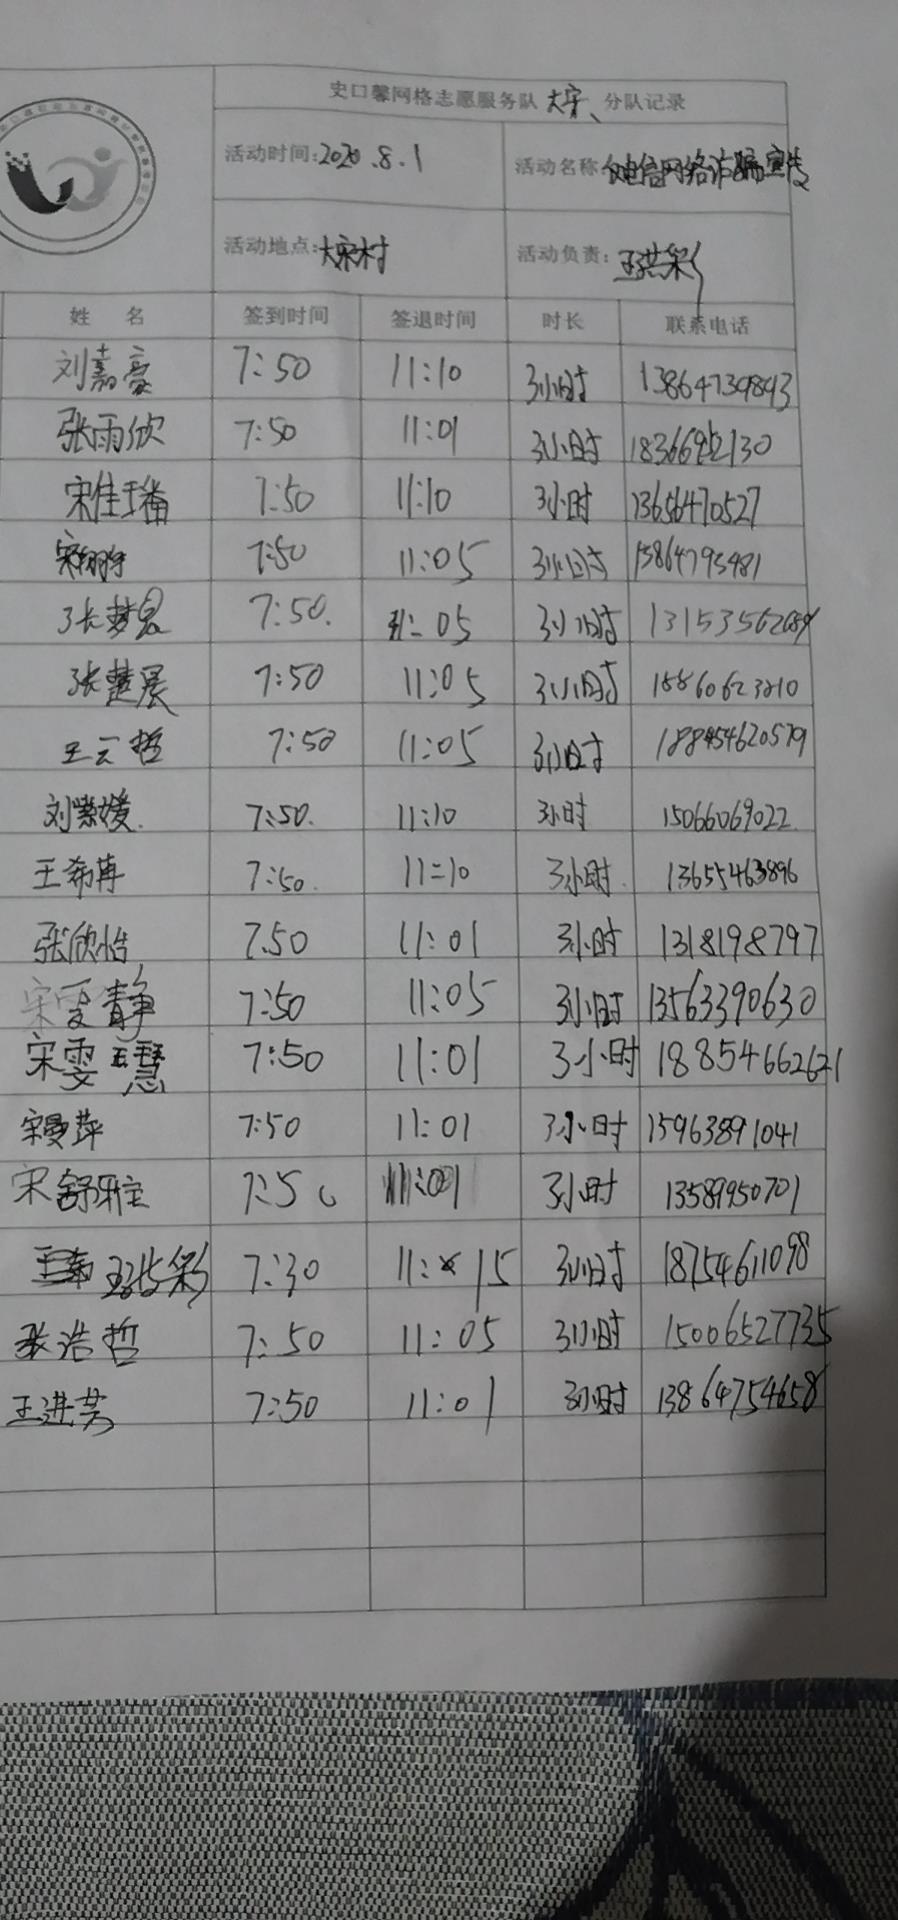 史口馨网格志愿服务队大宋、分队记录
活动时间:2020.8.1 活动名称:电信网络诈骗宣传
活动地点:大宋村 活动负责:王洪彩
姓 名 签到时间 签退时间 时长 联系电话
刘嘉豪 7:50 11:10 3小时 13864739893
张雨欣 7:50 11:01 3小时
宋佳璠 7:50 11:10 3小时 13656470527
7:50 11:05 3小时 15864795481
张梦 7:50. 11:05 3小时
张楚晨 7:50 11:05 3小时
王云哲 7:50 11:05 3小时
刘紫媛. 7:50. 11:10 3小时 15066069022
王希苒 7:50. 11:10 3小时. 13655463896
张欣怡 7.50 11:01 3小时 1318198797
宋雯静 7:50 11:05 3小时 13563390630
宋雯慧 7:50 11:01 3小时
宋曼萍 7:50 11:01 3小时 15963891041
宋舒雅 7:50 11:01 3小时 13589950701
王洪彩 7:30 11:15 3小时 18754611098
张浩哲 7:50 11:05 3小时 15006527735
王进芳 7:50 11:01 3小时 13864754658